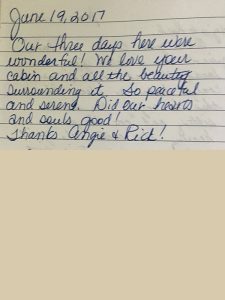 June 19, 2017
Our three days here were
wonderful! We love your
cabin and all the beauty
surrounding it. So peaceful
and serene. Did our hearts
and souls good!
Thanks Angie & Rick!